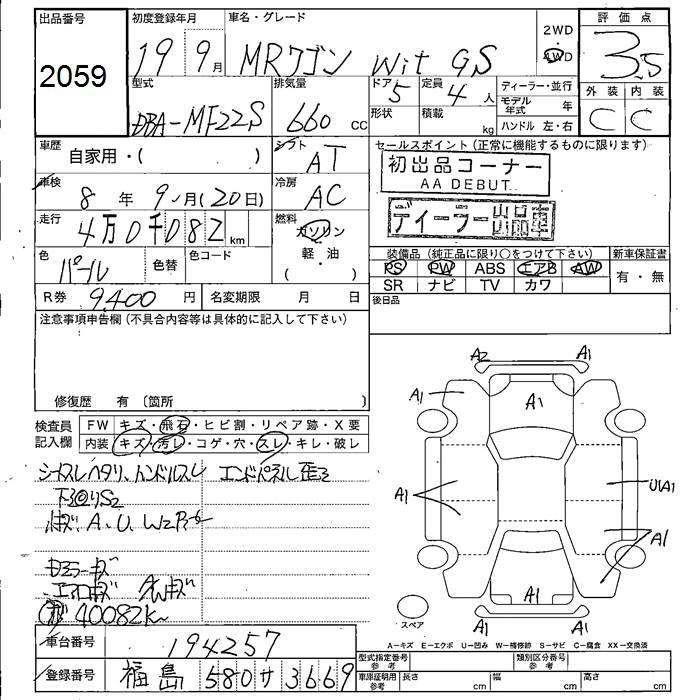 出品番号 初度登録年月 車名・グレード 2WD 4WD 評価点
2059 19 9月 MRワゴン Wit GS 3.5
型式 排気量 ドア 定員 ディーラー・並行 外装 内装
DBA-MF22S 660 CC 5 4人 モデル年式 年 C C
形状 積載 kg ハンドル 左・右
車歴 自家用・( ) シフト AT セールスポイント(正常に機能するものに限ります)
車検 8年9月(20日) 冷房 AC 初出品コーナー
AA DEBUT
走行 4万0千082km 燃料 ガソリン ディーラー出品車
軽・油
( )
色 パール 色替 色コード 装備品(純正品に限り○をつけて下さい) 新車保証書
PS PW ABS エアB AW 有・無
SR ナビ TV カワ
R券 9,400円 名変期限 月 日 後日品
注意事項申告欄(不具合内容等は具体的に記入して下さい)
修復歴 有(箇所 )
検査員記入欄 FW キズ・飛石・ヒビ割・リペア跡・X要
内装 キズ・汚レ・コゲ・穴・スレ・キレ・破レ
シートスレヘタリ、ハンドルスレ エンドパネル歪ミ
下回りS2
A、U、W2
エアロキズ AWキズ
40082K~
A2 A1
A1 A1
A1 U1A1
A1
A1 A1
スペア
A-キズ E-エクボ U-凹み W-補修跡 S-サビ C-腐食 XX-交換済
車台番号 194257 型式指定番号 参考 類別区分番号 参考
登録番号 福島 580 サ 3669 車庫証明用 参考 長さ cm 幅 cm 高さ cm